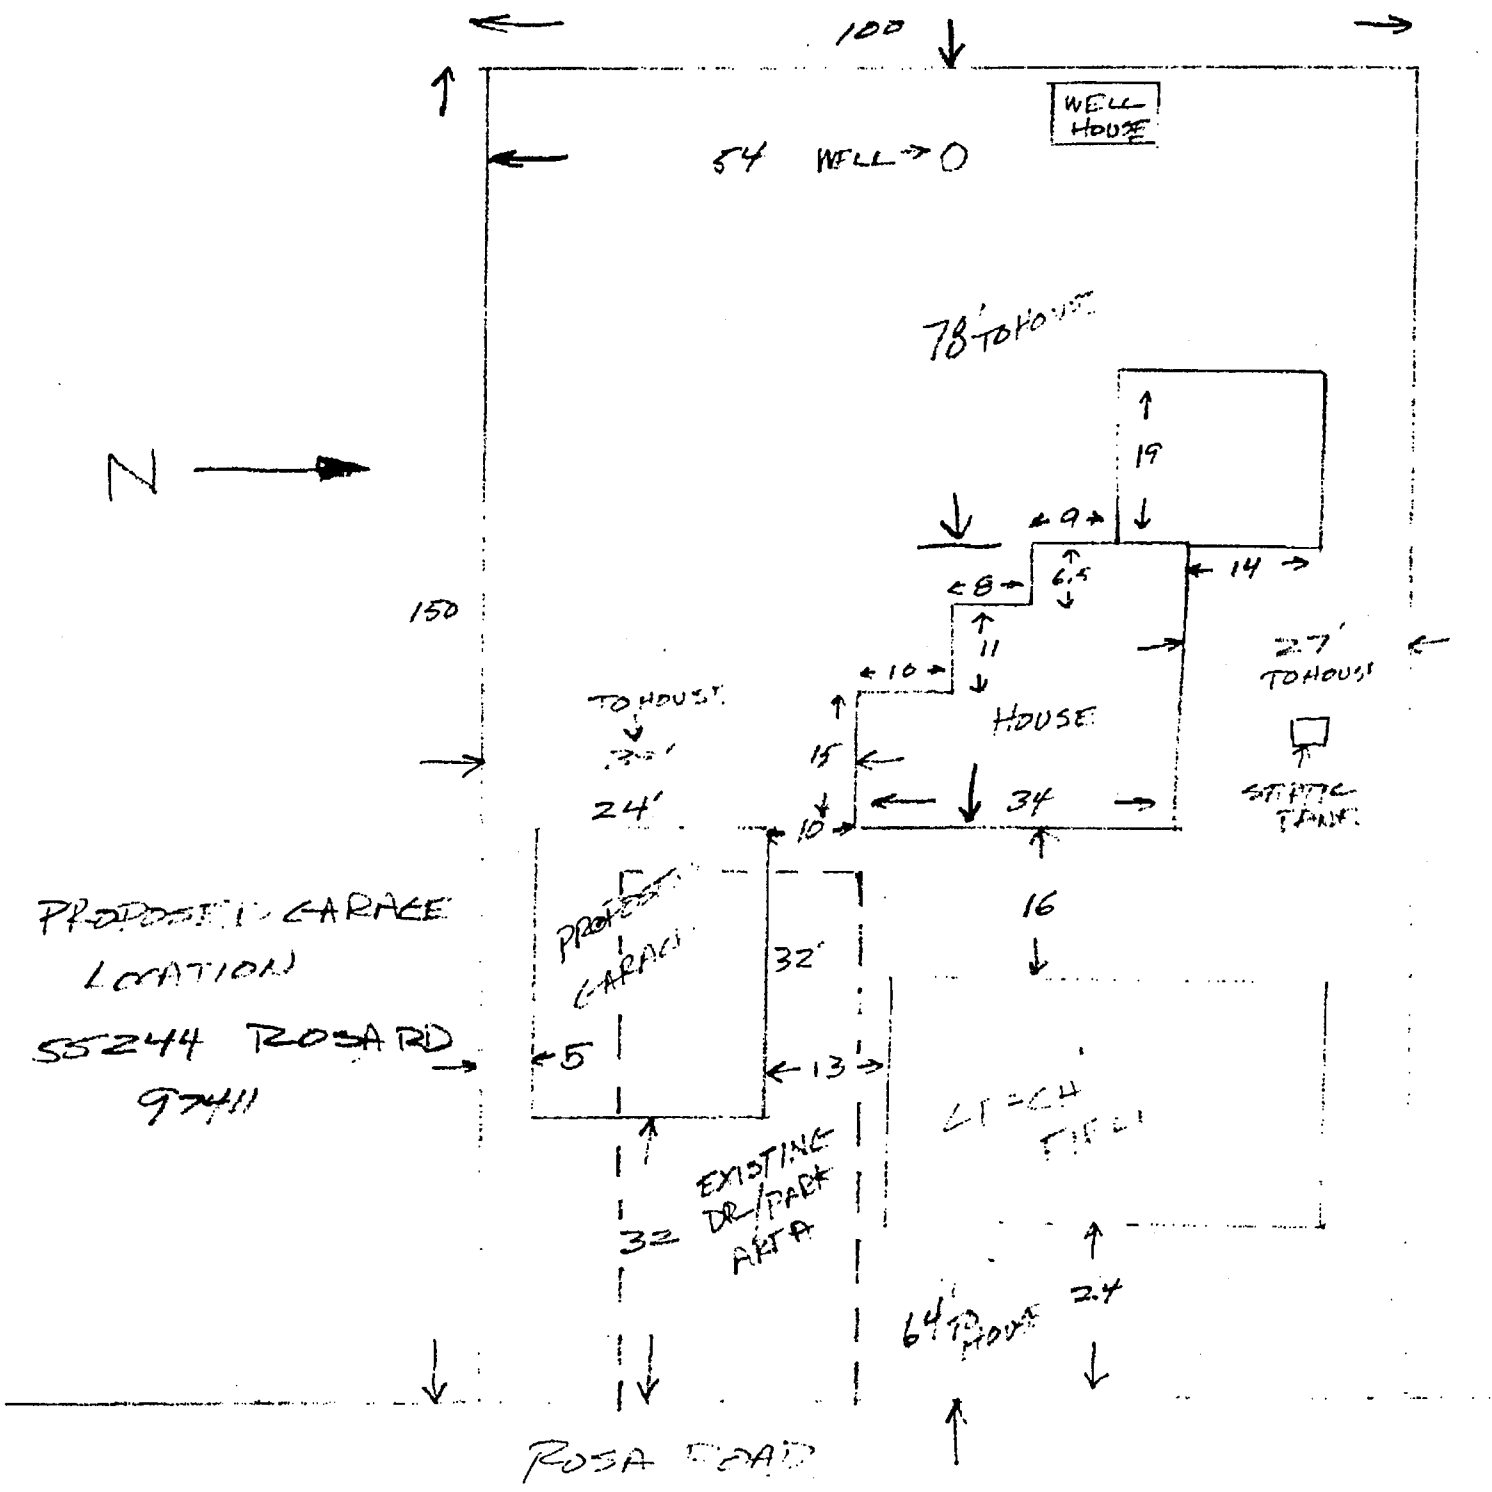 100
WELL
HOUSE
54 WELL
78' TO HOUSE
N
19
9
6.5
14
8
150
11
27'
TO HOUSE
10
TO HOUSE
HOUSE
15
24'
34
10
PROPOSED GARAGE
LOCATION
55244 ROSA RD
97411
PROPOSED
GARAGE
32'
16
5
13
EXISTING
DR/PARK
AREA
32
64' TO
HOUSE
24
ROSA ROAD